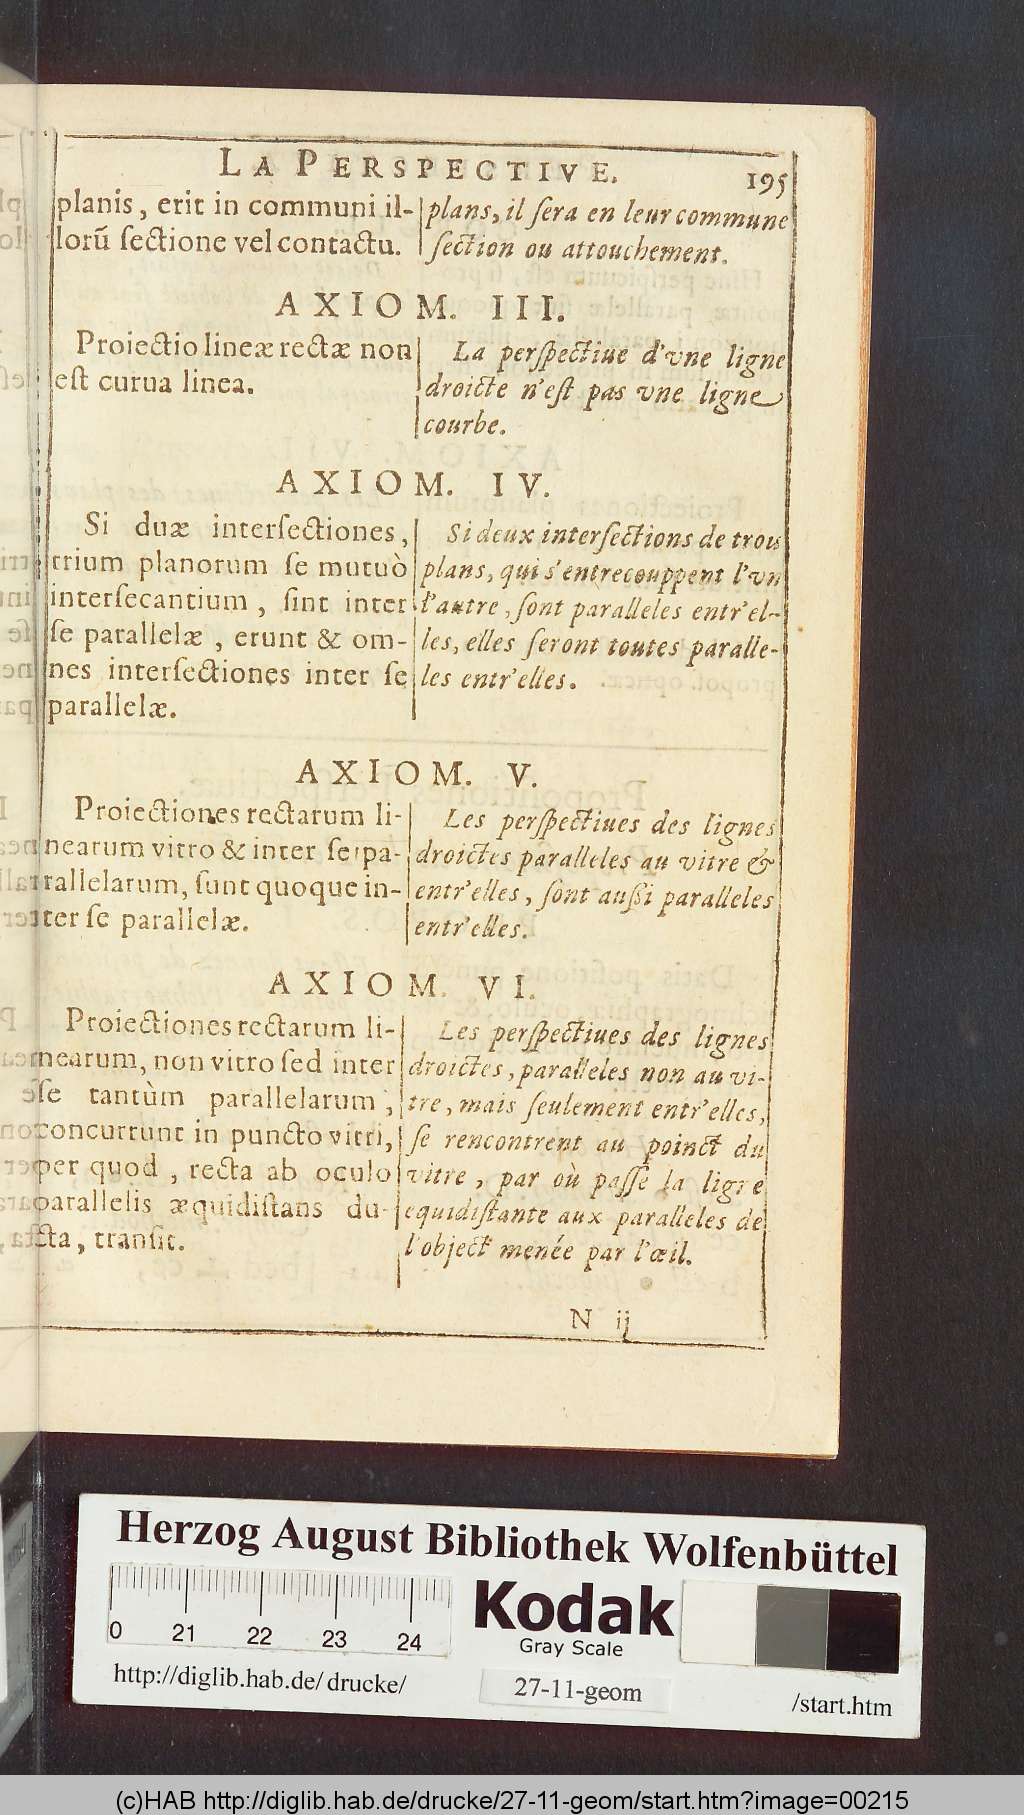 LA PERSPECTIVE.
195
planis, erit in communi il-
lorũ ſectione vel contactu.
plans, il ſera en leur commune
ſection ou attouchement.
AXIOM. III.
Proiectio lineæ rectæ non
eſt curua linea.
La perſpectiue d'vne ligne
droicte n'eſt pas vne ligne
courbe.
AXIOM. IV.
Si duæ interſectiones,
trium planorum ſe mutuò
interſecantium, ſint inter
ſe parallelæ, erunt & om-
nes interſectiones inter ſe
parallelæ.
Si deux interſections de trois
plans, qui s'entrecouppent l'vn
l'autre, ſont paralleles entr'el-
les, elles ſeront toutes paralle-
les entr'elles.
AXIOM. V.
Proiectiones rectarum li-
nearum vitro & inter ſe pa-
rallelarum, ſunt quoque in-
ter ſe parallelæ.
Les perſpectiues des lignes
droictes paralleles au vitre &
entr'elles, ſont außi paralleles
entr'elles.
AXIOM. VI.
Proiectiones rectarum li-
nearum, non vitro ſed inter
ſe tantùm parallelarum,
concurrunt in puncto vitri,
per quod, recta ab oculo
parallelis æquidiſtans du-
cta, tranſit.
Les perſpectiues des lignes
droictes, paralleles non au vi-
tre, mais ſeulement entr'elles,
ſe rencontrent au poinct du
vitre, par où paſſe la ligne
equidiſtante aux paralleles de
l'object menée par l'œil.
N ij
Herzog August Bibliothek Wolfenbüttel
0 21 22 23 24
Kodak
Gray Scale
http://diglib.hab.de/ drucke/
27-11-geom
/start.htm
(c)HAB http://diglib.hab.de/drucke/27-11-geom/start.htm?image=00215